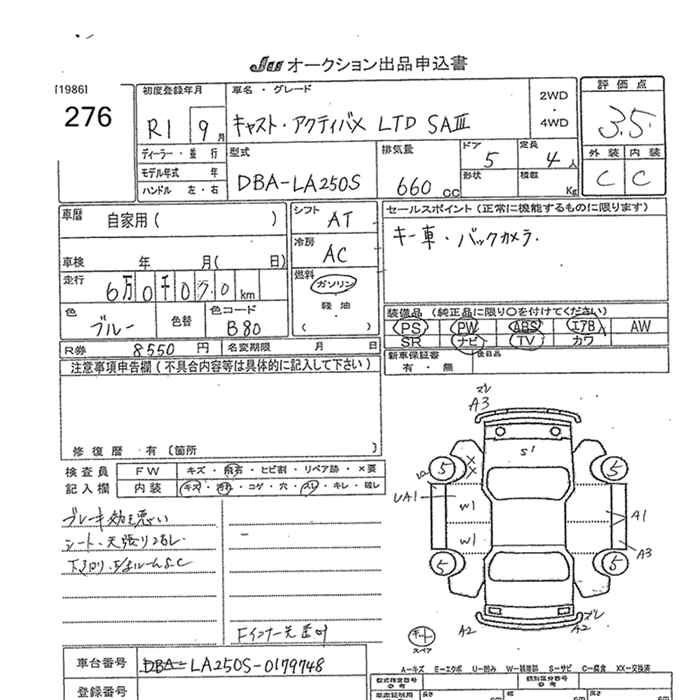 JU オークション出品申込書
[1986]
276
初度登録年月
R1 9月
車名・グレード
キャスト・アクティバX LTD SAⅢ
2WD
・
4WD
評価点
3.5
外装 内装
C C
ディーラー・並行
モデル年式 年
ハンドル 左・右
型式
DBA-LA250S
排気量
660 cc
ドア
5
定員
4人
形状
積載
Kg
車歴
自家用( )
車検 年 月( 日)
走行
6万0千0 0km
色
ブルー
色替
色コード
B80
R券 8550 円 名変期限 月 日
シフト
AT
冷房
AC
燃料
ガソリン
軽油
( )
セールスポイント(正常に機能するものに限ります)
キー車・バックカメラ.
装備品(純正品に限り○を付けてください)
PS PW ABS エアB AW
SR ナビ TV カワ
新車保証書
有・無
後日品
注意事項申告欄(不具合内容等は具体的に記入して下さい)
修復歴 有〔箇所 〕
検査員
記入欄
FW キズ・飛石・ヒビ割・リペア跡・×要
内装 キズ・汚れ・コゲ・穴・スレ・キレ・破レ
ブレーキ効き悪い
シート・天張り
S.C
Fインナー先
車台番号 DBA- LA250S-0179748
登録番号
ズレ
A3
S1
5
5
UA1
W1
W1
A1
A3
5
5
A2
A2
ズレ
キー
スペア
A-キズ E-エクボ U-凹み W-補修跡 S-サビ C-腐食 XX-交換済